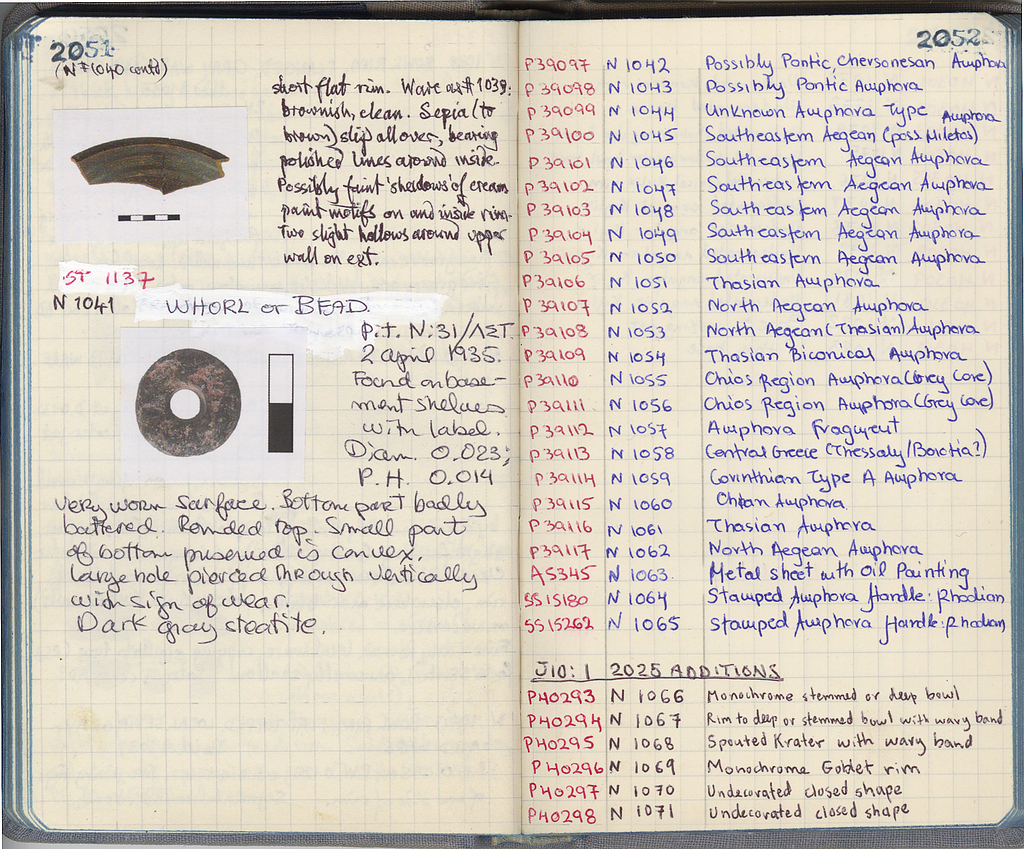 2051
(N#1040 contd)
short flat rim. Ware as #1039:
brownish, clean. Sepia (to
brown) slip all over, bearing
polished lines around inside.
Possibly faint 'shadows' of cream
paint motifs on and inside rim.
Two slight hollows around upper
wall on ext.
ST 1137
N 1041 WHORL or BEAD.
P.t. N:31/ΛΣΤ.
2 April 1935.
Found on base-
ment shelves
with label.
Diam. 0.023;
P.H. 0.014
Very worn surface. Bottom part badly
battered. Rounded top. Small part
of bottom preserved is convex.
Large hole pierced through vertically
with sign of wear.
Dark gray steatite.
2052
P39097 N 1042 Possibly Pontic, Chersonesan Amphora
P39098 N 1043 Possibly Pontic Amphora
P39099 N 1044 Unknown Amphora Type
P39100 N 1045 Southeastern Aegean (poss. Miletos) Amphora
P39101 N 1046 Southeastern Aegean Amphora
P39102 N 1047 Southeastern Aegean Amphora
P39103 N 1048 Southeastern Aegean Amphora
P39104 N 1049 Southeastern Aegean Amphora
P39105 N 1050 Southeastern Aegean Amphora
P39106 N 1051 Thasian Amphora
P39107 N 1052 North Aegean Amphora
P39108 N 1053 North Aegean (Thasian) Amphora
P39109 N 1054 Thasian Biconical Amphora
P39110 N 1055 Chios Region Amphora (Grey Core)
P39111 N 1056 Chios Region Amphora (Grey Core)
P39112 N 1057 Amphora Fragment
P39113 N 1058 Central Greece (Thessaly/Boiotia?)
P39114 N 1059 Corinthian Type A Amphora
P39115 N 1060 Chian Amphora
P39116 N 1061 Thasian Amphora
P39117 N 1062 North Aegean Amphora
A5345 N 1063 Metal sheet with Oil Painting
SS15180 N 1064 Stamped Amphora Handle: Rhodian
SS15262 N 1065 Stamped Amphora Handle: Rhodian
J10:1 2025 ADDITIONS
P40293 N 1066 Monochrome stemmed or deep bowl
P40294 N 1067 Rim to deep or stemmed bowl with wavy band
P40295 N 1068 Spouted Krater with wavy band
P40296 N 1069 Monochrome Goblet rim
P40297 N 1070 Undecorated closed shape
P40298 N 1071 Undecorated closed shape